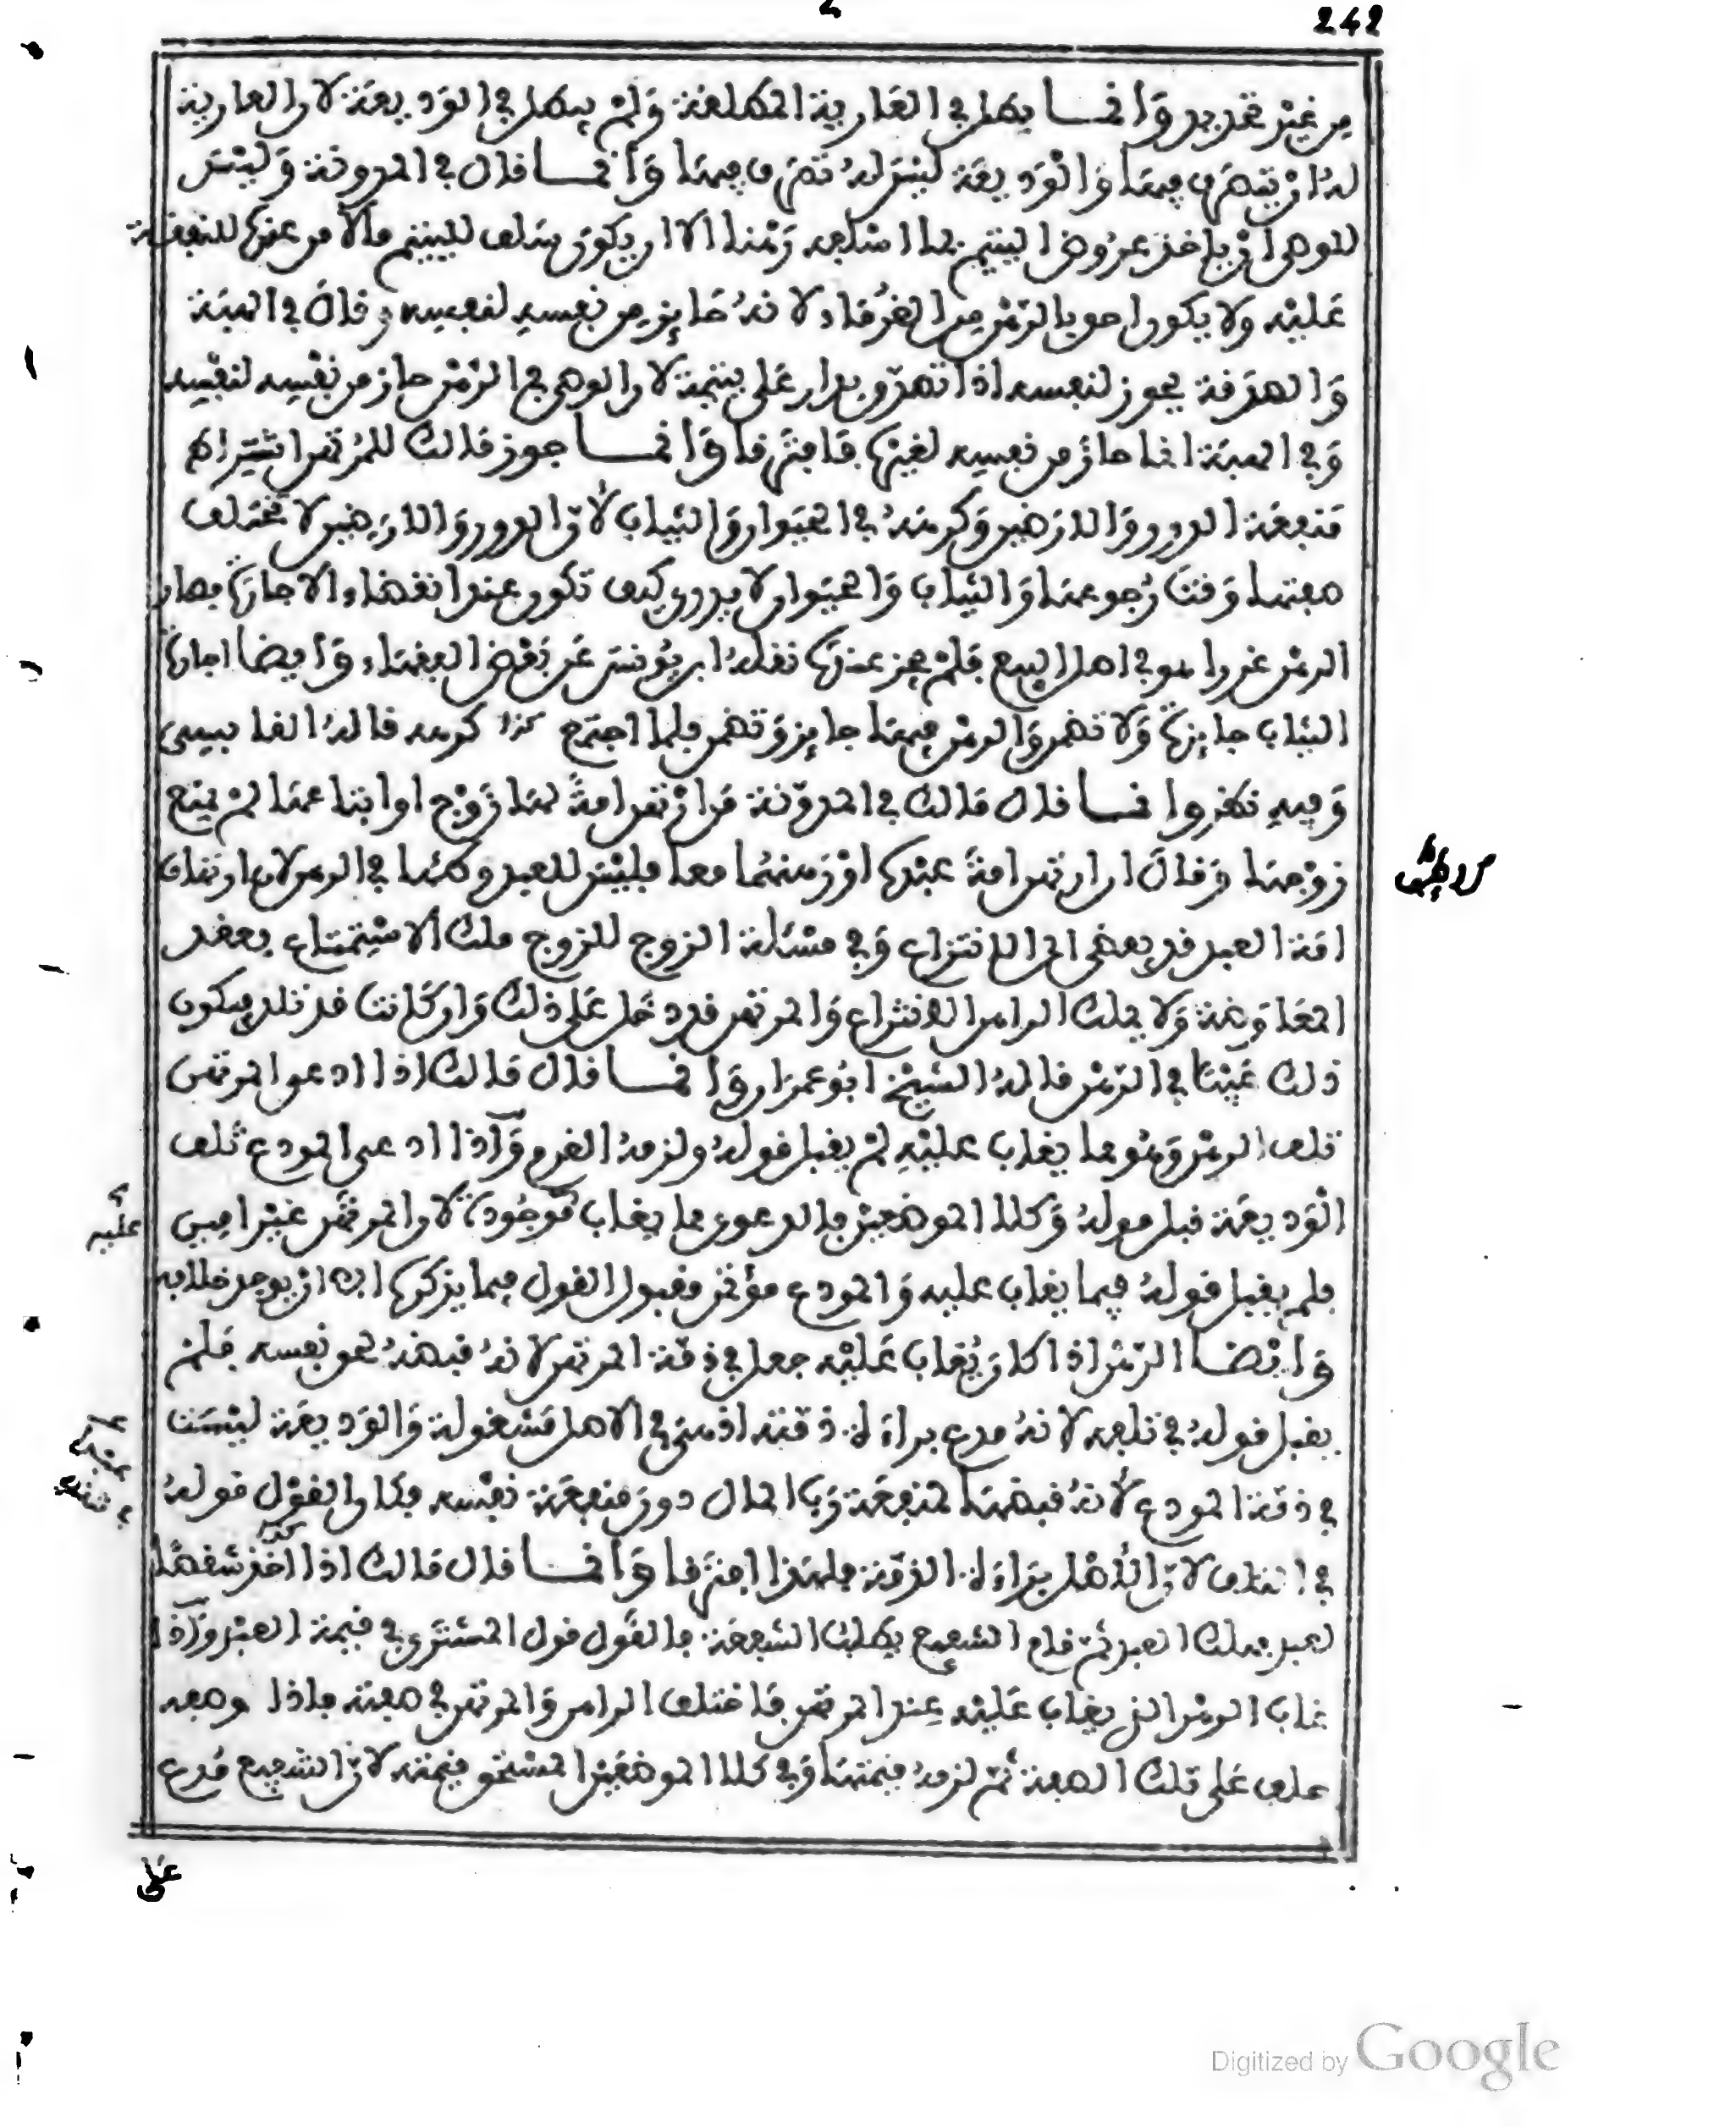 242
من غير تحديد وإنما يبطل في العارية المطلقة ولم يبطل في الوديعة لأن العارية
له أن يتصرف فيها والوديعة ليس له تصرف فيها وإنما قال في المدونة وليس
للوصي أن ياخذ عروض اليتيم بما اسلفه رهنا الا ان يكون سلف لليتيم مالا من عنده للنفقة
عليه ولا يكون احق بالرهن من الغرماء لانه حايز من نفسه لنفسه وقال في الهبة
والصدقة يجوز لنفسه اذا تصدق بدار على يتيمة لان الوصي في الرهن حاز من نفسه لنفسه
وفي الهبة انما حاز من نفسه لغيره فافترقا وإنما جوز مالك للمرتهن اشتراط
منفعة الدور والارضين وكرهه في الحيوان والثياب لأن الدور والارضين لا تختلف
صفتها وقت رجوعها والثياب والحيوان لا يدرى كيف تكون عند انقضاء الاجارة فصار
الرهن غررا هو في اصل البيع فلم يجز عنده نقله ابن يونس عن بعض الفقهاء وايضا اجارة
الثياب جايزة ولا تضمن والرهن فيها جايز وتضمن فلما اجتمع كذا كرهه قاله القابسي
وفيه نظر وانما قال مالك في المدونة من ارتهن امة لها زوج او ابتاعها لم يمنع
زوجها وقال ان ارتهن امة عبده او رهنهما معا فليس للعبد وطئها في الرهن لان ارتهان
امة العبد قد يفضي الى الانتزاع وفي مسئلة الزوج للزوج ملك الاستمتاع بعقد
المعاوضة ولا يملك الراهن الانتزاع والمرتهن قد دخل على ذلك وان كانت قد تلد فيكون
ذلك عيبا في الرهن قاله الشيخ ابو عمران وإنما قال مالك اذا ادعى المرتهن
تلف الرهن وهو مما يغاب عليه لم يقبل قوله ولزمه الغرم وإذا ادعى المودع تلف
الوديعة قبل قوله وكلا الموضعين فالدعوى مما يغاب موجودة لان المرتهن غير امين
عليه
فلم يقبل قوله فيما يغاب عليه والمودع مؤتمن مقبول القول فيما يذكره الا ان يوجد خلافه
وايضا الرهن اذا كان يغاب عليه جعل في ذمة المرتهن لانه قبضه لحق نفسه فلم
يقبل قوله في تلفه لانه مدع براءة ذمته اذ هي في الاصل مشغولة والوديعة ليست
في ذمة المودع لانه قبضها لمنفعة رب المال دون منفعة نفسه فكان القول قوله
في التلف لان الأصل براءة الذمة فلهذا افترقا وإنما قال مالك اذا اخذ شقصا
لعبد فهلك العبد ثم قام الشفيع يطلب الشفعة فالقول قول المشتري في قيمة العبد وإذا
غاب الرهن الذي يغاب عليه عند المرتهن فاختلف الراهن والمرتهن في صفته فاذا وصفه
حلف على تلك الصفة ثم لزمه قيمتها وفي كلا الموضعين المستحق قيمته لان الشفيع مدع
على
Digitized by Google